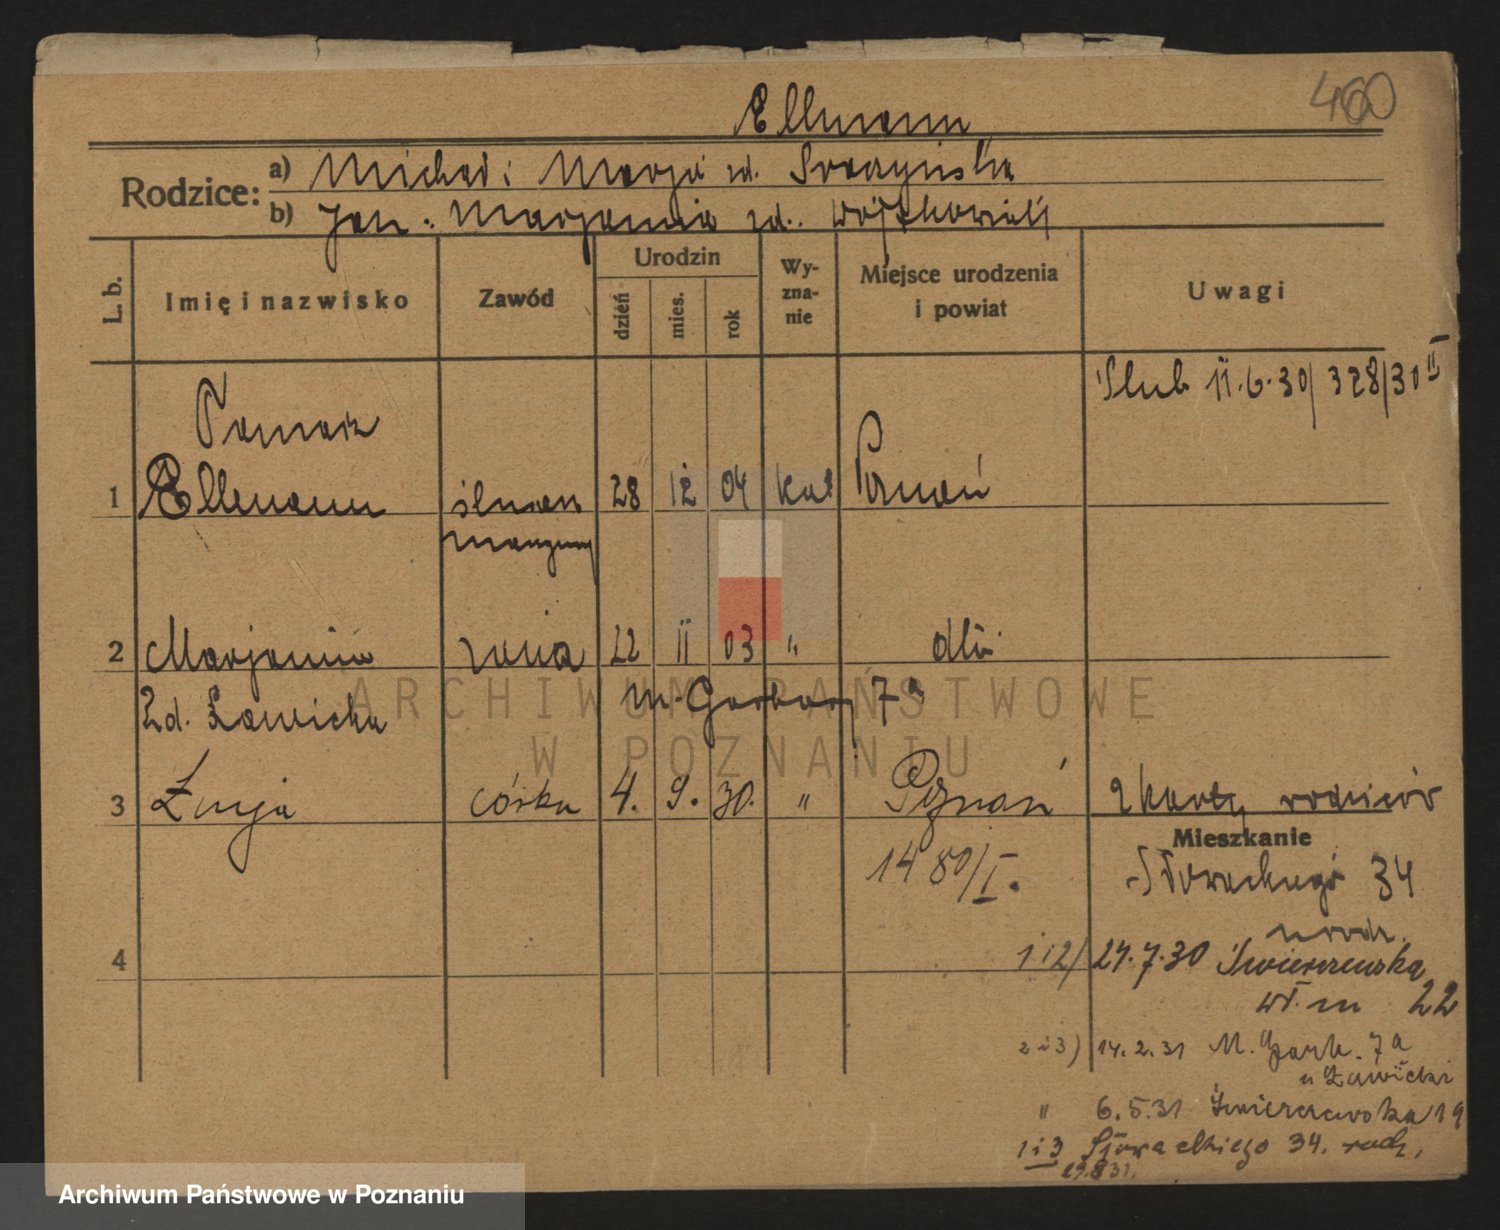 460
Ellmann
Rodzice:
a) Michał i Marja zd.
b) Jan i Marjanna zd. Wojtkowiak
L. b.
Imię i nazwisko
Zawód
Urodzin
dzień
mies.
rok
Wy-
zna-
nie
Miejsce urodzenia
i powiat
Uwagi
Ślub 11.6.30/328/30 II
1
Ellmann
28 12 04 kat Poznań
2 Marjanna żona 22 11 03 " dto
zd. Ławicka
M. Garbary 7a
3 Łucja córka 4. 9. 30. " Poznań z karty rodziców
1480/I.
Mieszkanie
Słowackiego 34
u rodz.
4
1 i 2) 24.7.30 Zwierzyniecka
wł. m 22
2 i 3) 14.2.31 M. Garb. 7a
u Ławicki
" 6.5.31 19
1 i 3 Słowackiego 34. rodz.
29.8.31.
ARCHIWUM PAŃSTWOWE
W POZNANIU
Archiwum Państwowe w Poznaniu